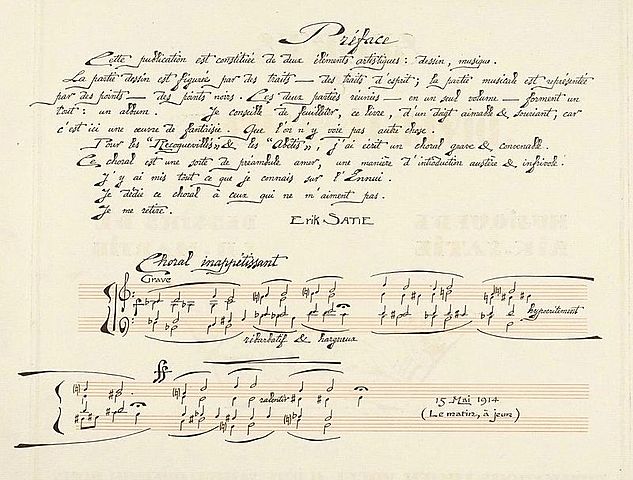 Préface
Cette publication est constituée de deux éléments artistiques : dessin, musique.
La partie dessin est figurée par des traits — des traits d'esprit; la partie musicale est représentée
par des points — des points noirs. Ces deux parties réunies — en un seul volume — forment un
tout : un album. Je conseille de feuilleter, ce livre, d'un doigt aimable & souriant; car
c'est ici une œuvre de fantaisie. Que l'on n'y voie pas autre chose.
Pour les "Recoquevillés" & les "Abêtis", j'ai écrit un choral grave & convenable.
Ce choral est une sorte de préambule amer, une manière d'introduction austère & infrivole.
J'y ai mis tout ce que je connais sur l'Ennui.
Je dédie ce choral à ceux qui ne m'aiment pas.
Je me retire.
ERIK SATIE
Choral inappétissant
Grave
hypocritement
rébarbatif & hargneux
ff
ralentir
15 Mai 1914
(Le matin, à jeun)